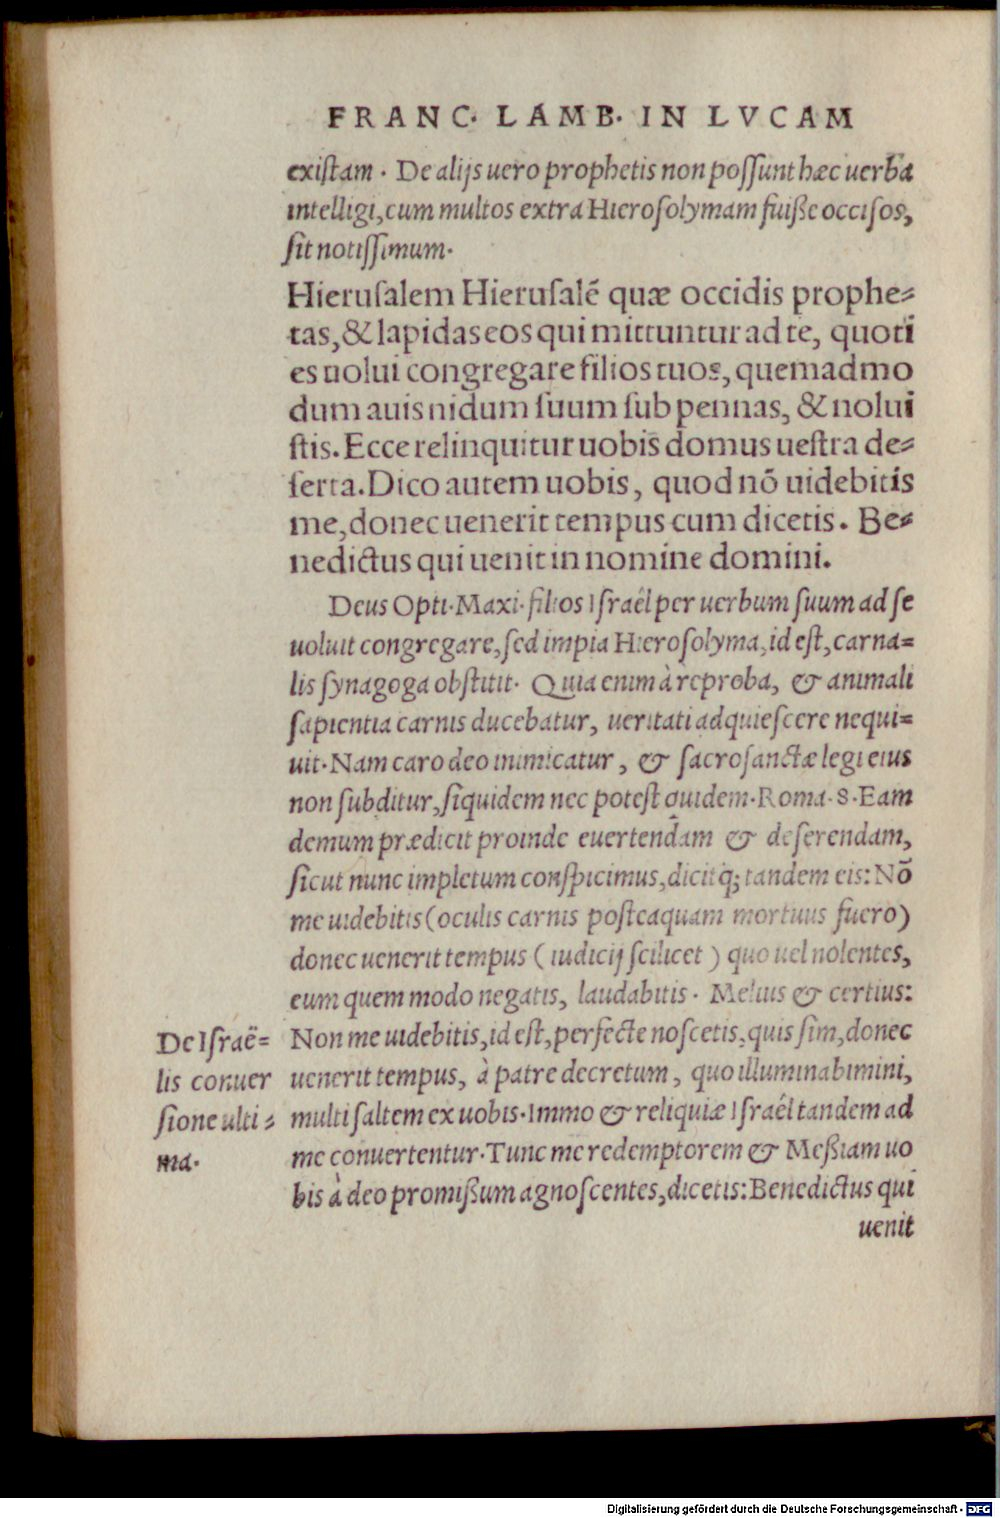 FRANC. LAMB. IN LVCAM
exiſtam. De alijs uero prophetis non poſſunt hæc uerba
intelligi, cum multos extra Hieroſolymam fuiße occiſos,
ſit notiſſimum.
Hieruſalem Hieruſalē quæ occidis prophe-
tas, & lapidas eos qui mittuntur ad te, quoti
es uolui congregare filios tuos, quemadmo
dum auis nidum ſuum ſub pennas, & nolui
ſtis. Ecce relinquitur uobis domus ueſtra de-
ſerta. Dico autem uobis, quod nō uidebitis
me, donec uenerit tempus cum dicetis. Be-
nedictus qui uenit in nomine domini.
Deus Opti. Maxi. filios Iſraël per uerbum ſuum ad ſe
uoluit congregare, ſed impia Hieroſolyma, id eſt, carna-
lis ſynagoga obſtitit. Quia enim à reproba, & animali
ſapientia carnis ducebatur, ueritati adquieſcere nequi-
uit. Nam caro deo inimicatur, & ſacroſanctæ legi eius
non ſubditur, ſiquidem nec poteſt quidem. Roma. 8. Eam
demum prædicit proinde euertendam & deſerendam,
ſicut nunc impletum conſpicimus, dicitq́; tandem eis: Nō
me uidebitis (oculis carnis poſteaquam mortuus fuero)
donec uenerit tempus (iudicij ſcilicet) quo uel nolentes,
eum quem modo negatis, laudabitis. Melius & certius:
Non me uidebitis, id eſt, perfecte noſcetis, quis ſim, donec
uenerit tempus, à patre decretum, quo illuminabimini,
multi ſaltem ex uobis. Immo & reliquiæ Iſraël tandem ad
me conuertentur. Tunc me redemptorem & Meßiam uo
bis à deo promißum agnoſcentes, dicetis: Benedictus qui
uenit
De Iſraë-
lis conuer
ſione ulti-
ma.
Digitalisierung gefördert durch die Deutsche Forschungsgemeinschaft - DFG